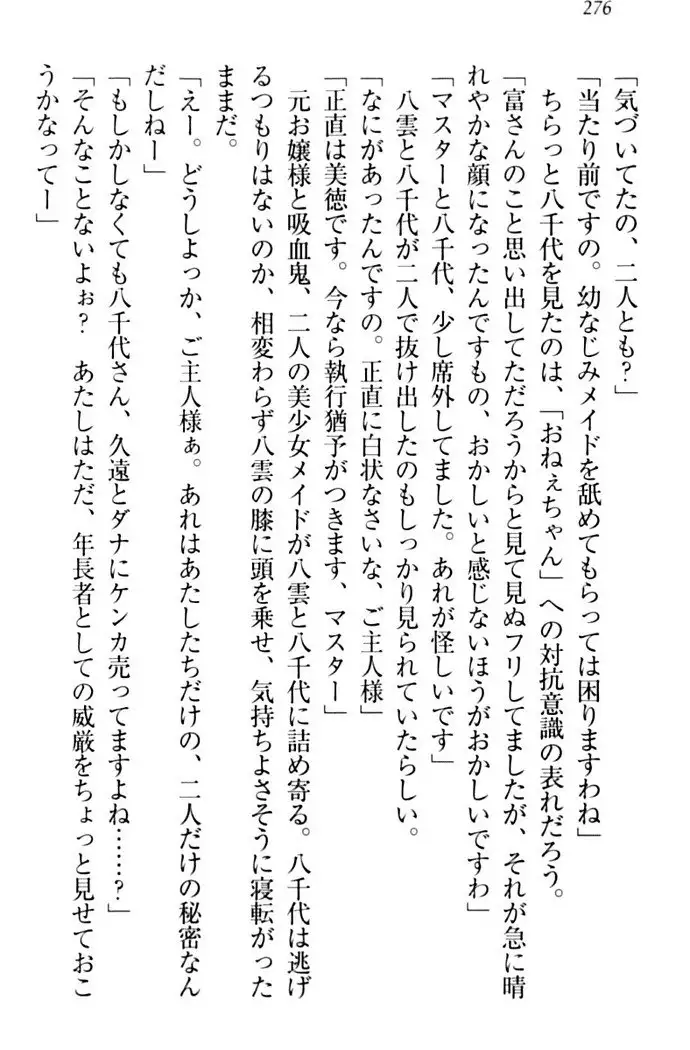 276
「気づいてたの、二人とも?」
「当たり前ですの。幼なじみメイドを舐めてもらっては困りますわね」
ちらっと八千代を見たのは、「おねぇちゃん」への対抗意識の表れだろう。
「富さんのこと思い出してただろうからと見て見ぬフリしてましたが、それが急に晴
れやかな顔になったんですもの、おかしいと感じないほうがおかしいですわ」
「マスターと八千代、少し席外してました。あれが怪しいです」
八雲と八千代が二人で抜け出したのもしっかり見られていたらしい。
「なにがあったんですの。正直に白状なさいな、ご主人様」
「正直は美徳です。今なら執行猶予がつきます、マスター」
元お嬢様と吸血鬼、二人の美少女メイドが八雲と八千代に詰め寄る。八千代は逃げ
るつもりはないのか、相変わらず八雲の膝に頭を乗せ、気持ちよさそうに寝転がった
ままだ。
「えー。どうしよっか、ご主人様ぁ。あれはあたしたちだけの、二人だけの秘密なん
だしねー」
「もしかしなくても八千代さん、久遠とダナにケンカ売ってますよね……?」
「そんなことないよぉ? あたしはただ、年長者としての威厳をちょっと見せておこ
うかなってー」